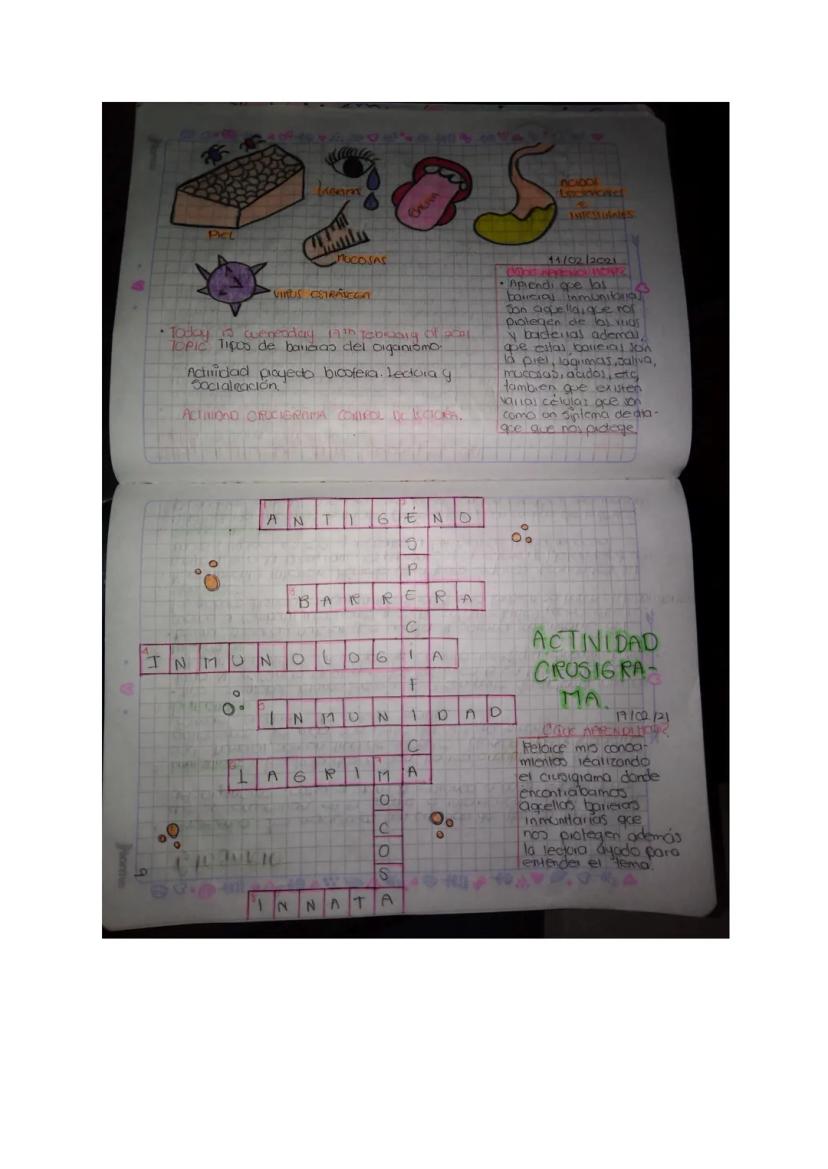 Piel
lagrimas
ENCIA
ACIDOS
E
INTESTINALES
MUCOSAS
VIRUS
11/02/2021
• Aprendi que las
barreras inmunitarias
son aquella que nos
protegen de los virus
y bacterias además
que estas barreras son
la piel, lagrimas, saliva,
mucosas, acidos, etc,
tambien que existen
varias células que son
como un sintema de ata-
que que nos protege
• Today is wenesday 17th february of 2021
TOPIC Tipos de barreras del organismo.
Actividad proyecto biosfera. Lectura y
Socialeación.
ACTIVIDAD CRUCIGRAMA CONTROL DE LECTURA.
ANTIGENO
ESPECIFICA
BARRERA
INMUNOLOGIA
INMUNIDAD
LAGRIMA
MOCOSA
INNATA
ACTIVIDAD
CRUSIGRA-
MA.
17/02/21
¿QUE APRENDI HOY?
Reforce mis conoci-
mientos realizando
el crusigrama donde
encontrabamos
aquellas barreras
inmunitarias que
nos protegen además
la lectura ayudo para
entender el tema.
9